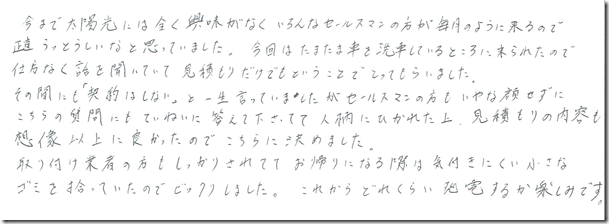 今まで太陽光には全く興味がなくいろんなセールスマンの方が毎月のように来るので
正直うっとうしいなと思っていました。今回はたまたま車を洗車しているところに来られたので
仕方なく話を聞いていて見積もりだけでもということでとってもらいました。
その間にも「契約はしない」と一生言っていましたがセールスマンの方もいやな顔せずに
こちらの質問にもていねいに答えて下さってて人柄にひかれた上、見積もりの内容も
想像以上に良かったのでこちらに決めました。
取り付け業者の方もしっかりされててお帰りになる際は気付きにくい小さな
ゴミを拾っていたのでビックリしました。これからどれくらい発電するか楽しみです。